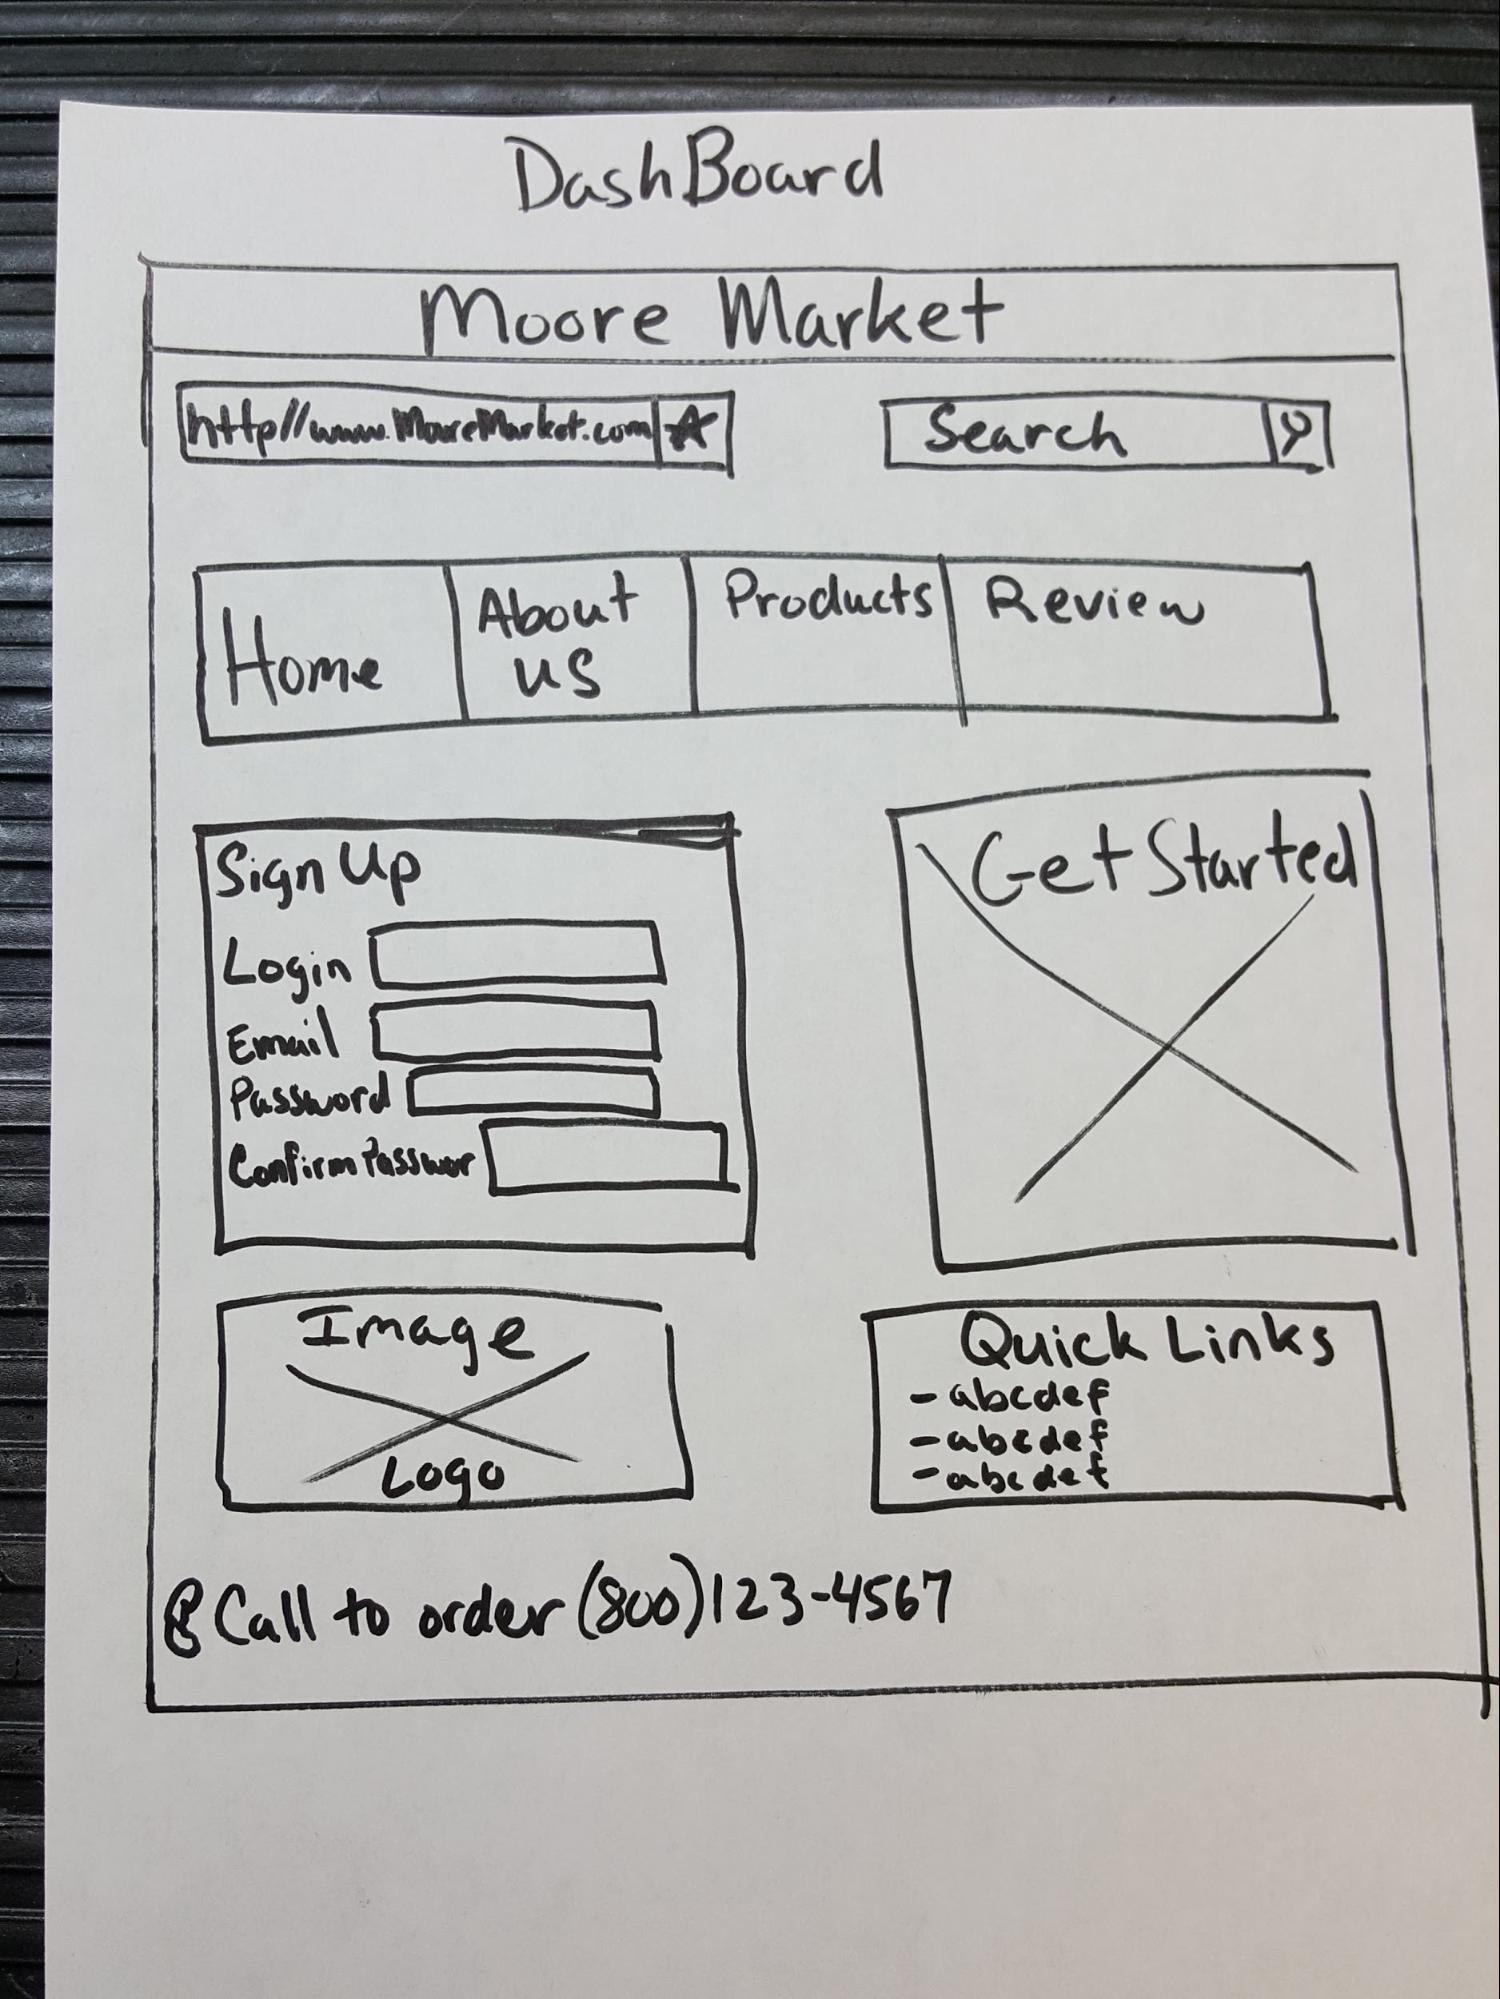 DashBoard
Moore Market
http//www.MooreMarket.com
Search
Home
About
us
Products
Review
Sign Up
Login
Email
Password
Confirm Passwor
Get Started
Image
Logo
Quick Links
- abcdef
- abcdef
- abcdef
Call to order (800)123-4567